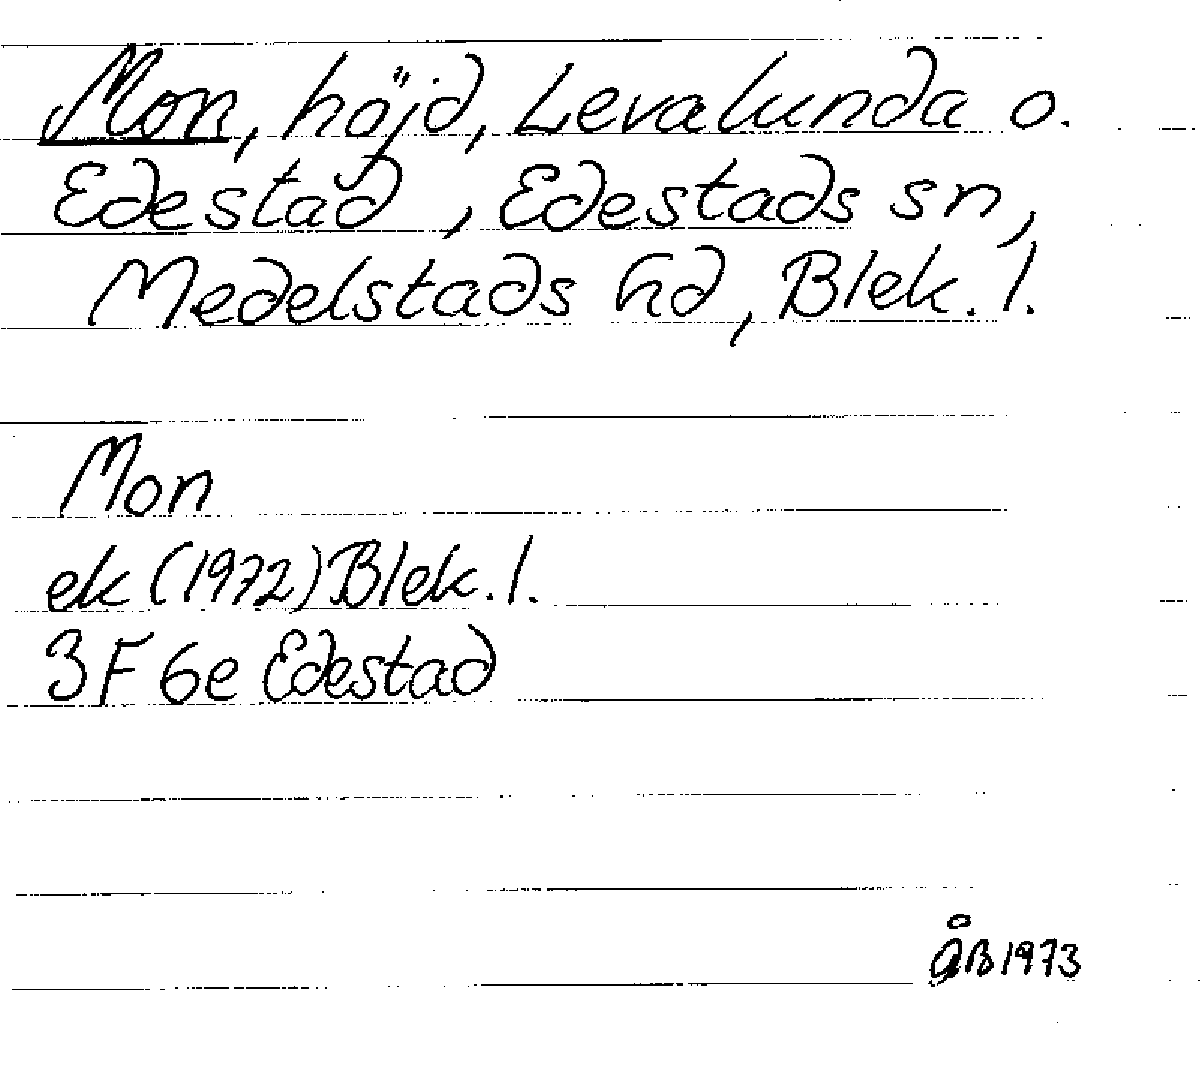 Mon, höjd, Levalunda o.
Edestad, Edestads sn,
Medelstads hd, Blek. l.
Mon
ek (1972) Blek. l.
3F 6e Edestad
ÅB 1973